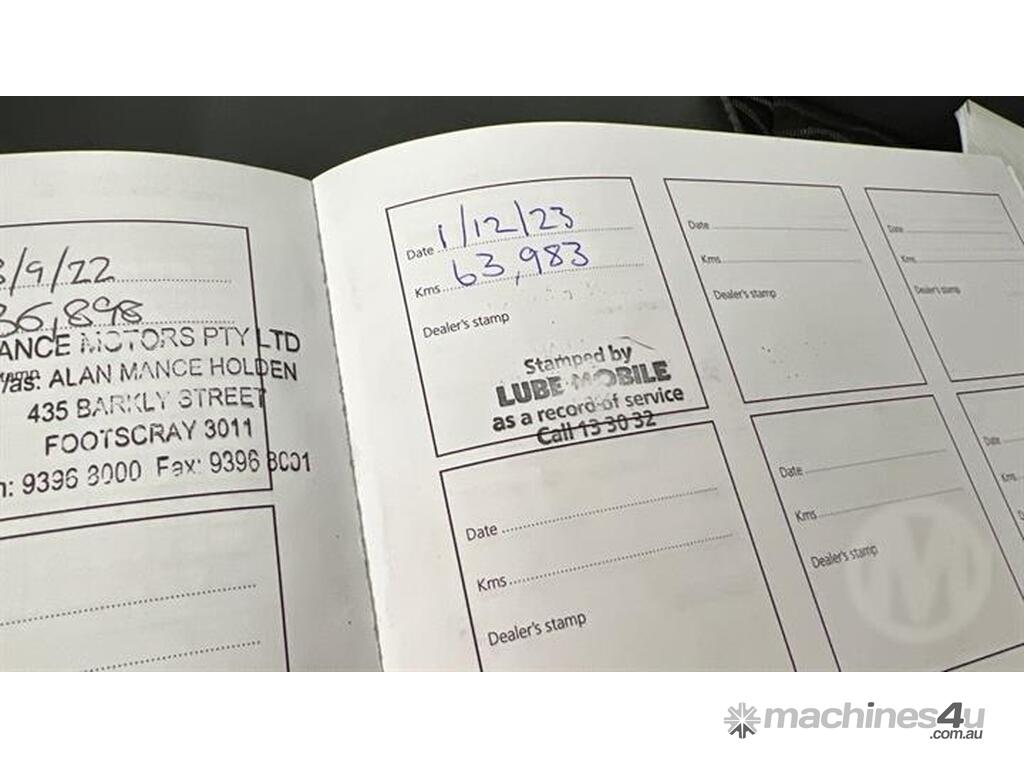 /9/22
36,898
ANCE MOTORS PTY LTD
/as: ALAN MANCE HOLDEN
435 BARKLY STREET
FOOTSCRAY 3011
: 9396 8000 Fax: 9396 8001
Date 1/12/23
Kms 63,983
Dealer's stamp
Stamped by
LUBE MOBILE
as a record of service
Call 13 30 32
Date
Kms
Dealer's stamp
Date
Kms
Dealer's stamp
Date
Kms
Dealer's stamp
Date
Kms
Dealer's stamp
Date
Kms
M
machines4u
.com.au